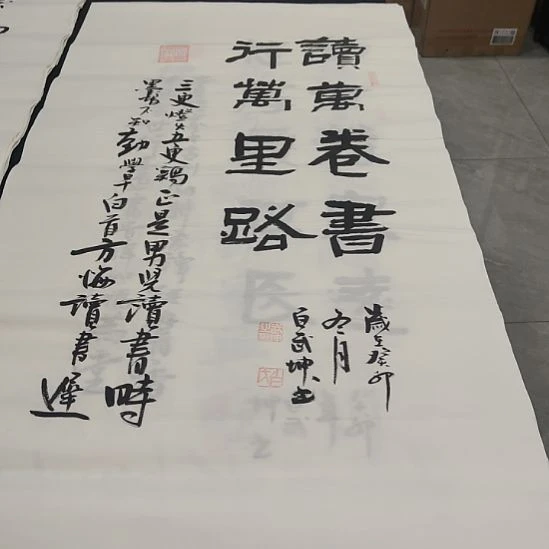 讀萬卷書
行萬里路
歲在癸卯
冬月
白武坤书
三更燈火五更鷄正是男児讀書時
黑髮不知勤學早白首方悔讀書遲